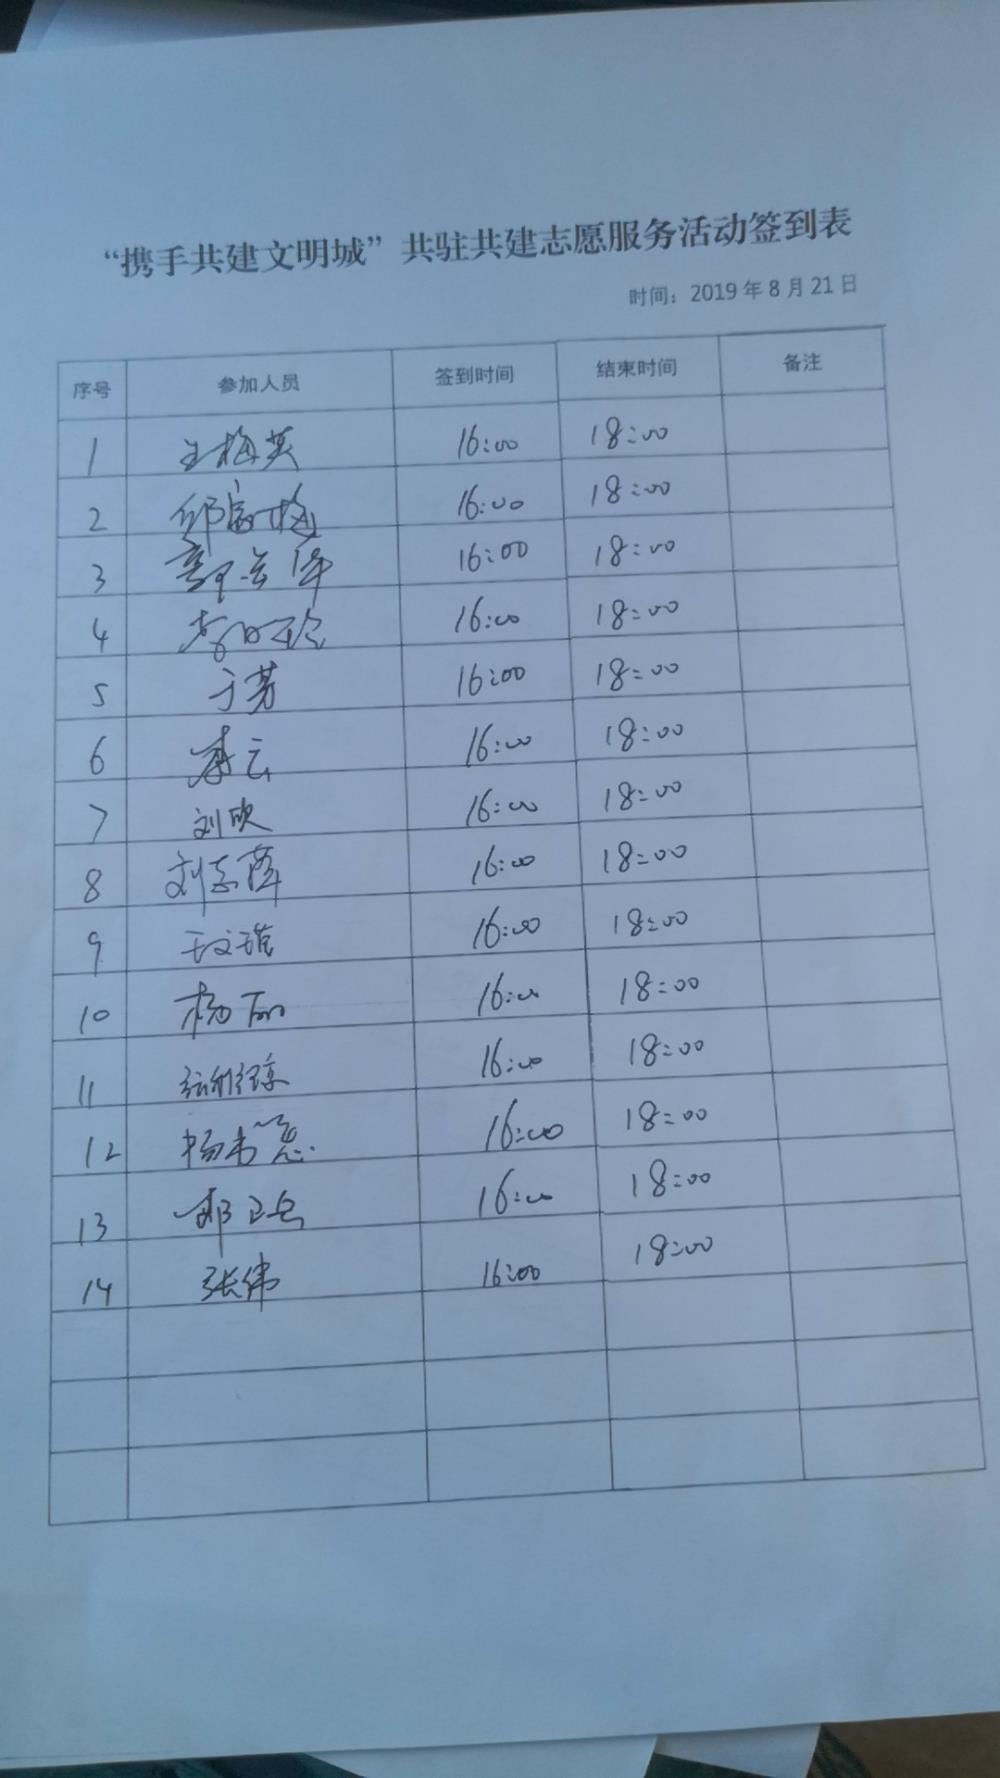 “携手共建文明城”共驻共建志愿服务活动签到表
时间：2019年8月21日
序号 参加人员 签到时间 结束时间 备注
1 王梅英 16:00 18:00
2 邱富梅 16:00 18:00
3 16:00 18:00
4 16:00 18:00
5 于芳 16:00 18:00
6 16:00 18:00
7 刘欣 16:00 18:00
8 刘志萍 16:00 18:00
9 16:00 18:00
10 杨丽 16:00 18:00
11 16:00 18:00
12 16:00 18:00
13 16:00 18:00
14 张伟 16:00 18:00